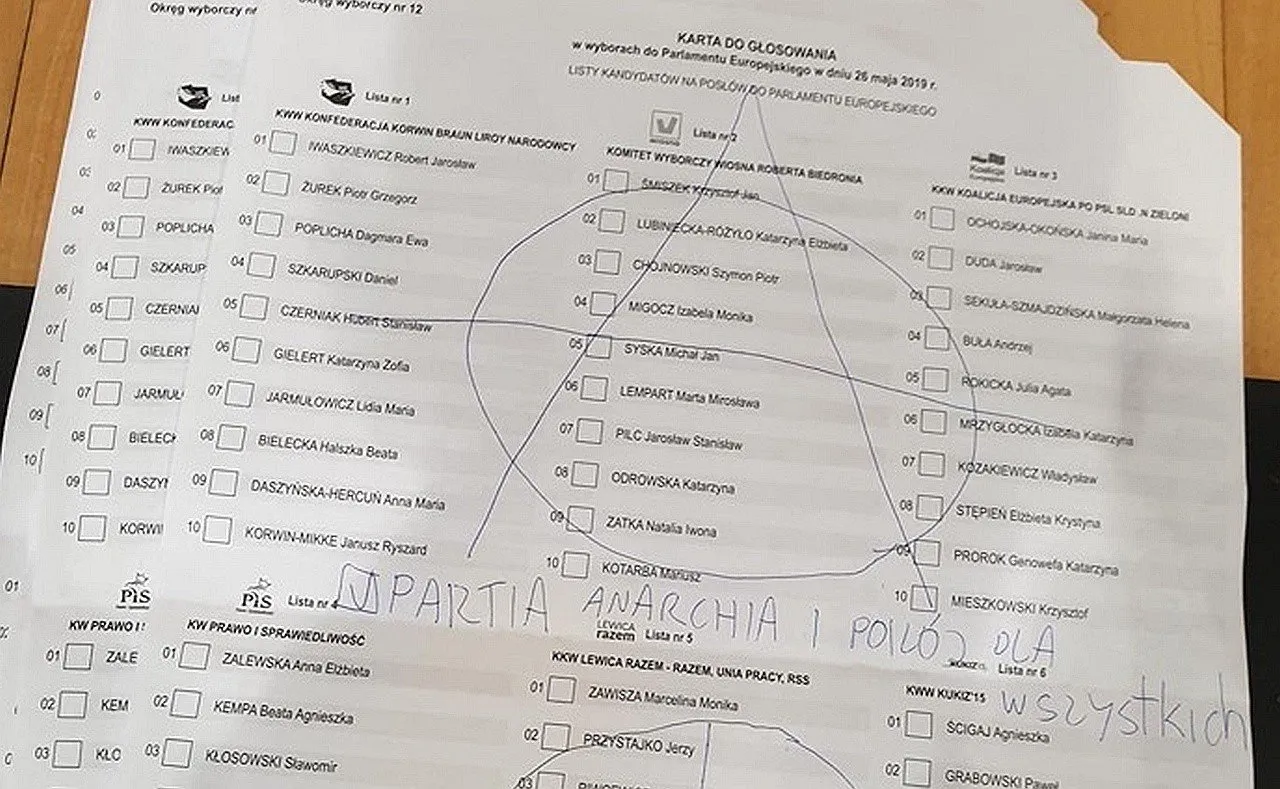 Okręg wyborczy nr
0
List
KWW KONFEDERAC
01 IWASZKIEW
02 ŻUREK Piot
03 POPLICHA
04 SZKARUP
05 CZERNIAK
06 GIELERT
07 JARMUŁ
08 BIELECK
09 DASZYŃ
10 KORWI
04
05
06
07
08
09
10
01
PiS
KW PRAWO I
01 ZALE
02 KEM
03 KŁO
Okręg wyborczy nr 12
KARTA DO GŁOSOWANIA
w wyborach do Parlamentu Europejskiego w dniu 26 maja 2019 r.
LISTY KANDYDATÓW NA POSŁÓW DO PARLAMENTU EUROPEJSKIEGO
Lista nr 1
KWW KONFEDERACJA KORWIN BRAUN LIROY NARODOWCY
01 IWASZKIEWICZ Robert Jarosław
02 ŻUREK Piotr Grzegorz
03 POPLICHA Dagmara Ewa
04 SZKARUPSKI Daniel
05 CZERNIAK Hubert Stanisław
06 GIELERT Katarzyna Zofia
07 JARMUŁOWICZ Lidia Maria
08 BIELECKA Halszka Beata
09 DASZYŃSKA-HERCUŃ Anna Maria
10 KORWIN-MIKKE Janusz Ryszard
Lista nr 2
KOMITET WYBORCZY WIOSNA ROBERTA BIEDRONIA
01 ŚMISZEK Krzysztof Jan
02 LUBINIECKA-RÓŻYŁO Katarzyna Elżbieta
03 CHOJNOWSKI Szymon Piotr
04 MIGOCZ Izabela Monika
05 SYSKA Michał Jan
06 LEMPART Marta Mirosława
07 PILC Jarosław Stanisław
08 ODROWSKA Katarzyna
09 ZATKA Natalia Iwona
10 KOTARBA Mariusz
Koalicja Europejska
Lista nr 3
KKW KOALICJA EUROPEJSKA PO PSL SLD .N ZIELONI
01 OCHOJSKA-OKOŃSKA Janina Maria
02 DUDA Jarosław
03 SEKUŁA-SZMAJDZIŃSKA Małgorzata Helena
04 BUŁA Andrzej
05 ROKICKA Julia Agata
06 MRZYGŁOCKA Izabela Katarzyna
07 KOZAKIEWICZ Władysław
08 STĘPIEŃ Elżbieta Krystyna
09 PROROK Genowefa Katarzyna
10 MIESZKOWSKI Krzysztof
PARTIA ANARCHIA I POKÓJ DLA
WSZYSTKICH
PiS Lista nr 4
KW PRAWO I SPRAWIEDLIWOŚĆ
01 ZALEWSKA Anna Elżbieta
02 KEMPA Beata Agnieszka
03 KŁOSOWSKI Sławomir
LEWICA razem Lista nr 5
KKW LEWICA RAZEM - RAZEM, UNIA PRACY, RSS
01 ZAWISZA Marcelina Monika
02 PRZYSTAJKO Jerzy
03
KUKIZ15 Lista nr 6
KWW KUKIZ'15
01 ŚCIGAJ Agnieszka
02 GRABOWSKI Paweł